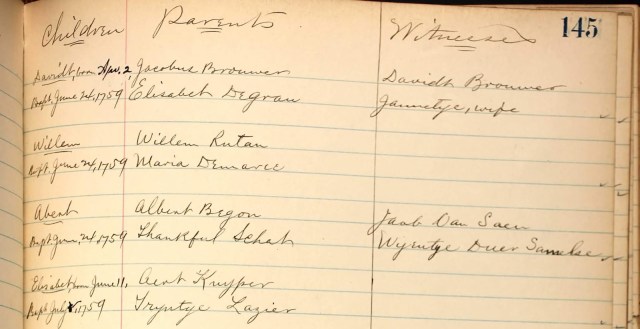 Children Parents Witnesses 145
Davidt, born Apr. 2, Jacobus Brouwer Davidt Brouwer
Bapt. June 24, 1759 Elisabet Degrau Jannetye, wife
Willem Willem Rutan
Bapt. June 24, 1759 Maria Demaree
Abent Albert Begon Jaab Van Saen
Bapt. June, 24, 1759 Thankful Schat Wyntye Duer
Elisabet, born June 11, Aert Kuyper
Bapt. July 1759 Tryntye Lazier